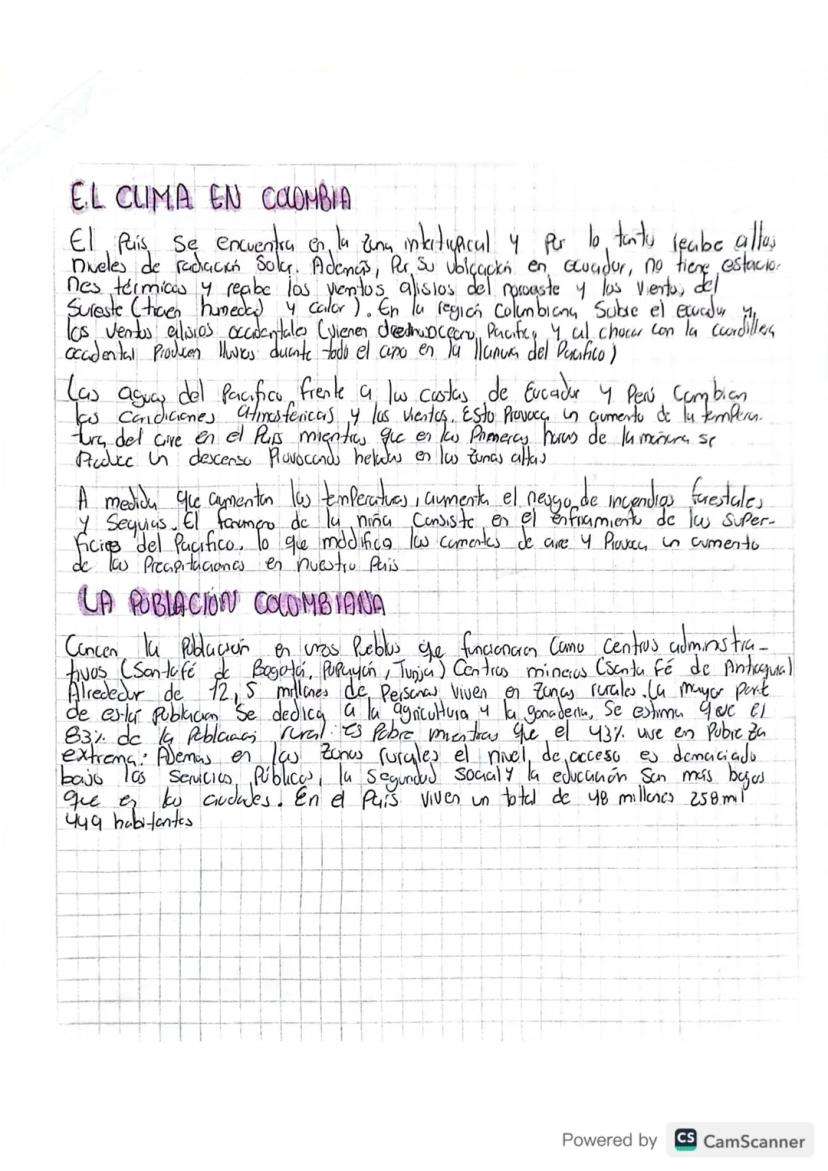 EL CLIMA EN COLOMBIA
El Pais se encuentra en la zona intertropical y por lo tanto recibe altos
niveles de radiación Solar. Además, Por Su ubicación en ecuador, no tiene estacio-
nes térmicas y recibe los vientos alisios del noroeste y los vientos del
Sureste (traen humedad y calor). En la región Colombiana Sube el ecuador y
los ventos alisios occidentales (vienen del océano Pacifico y al chocar con la cuordillera
occidental Producen lluvias durante todo el año en la llanura del Pacifico)
Las aguas del Pacifico frente a las costas de Ecuador y Perú Cambian
las Condiciones atmosféricas y los vientos. Esto Provoca un aumento de la tempera-
tura del aire en el País mientras que en las Primeras horas de la mañana se
Produce un descenso Provocando heladas en las zonas altas
A medida que aumentan las temperaturas, aumenta el riesgo de incendios forestales
y Sequias. El fenomeno de la niña Consiste en el enfriamiento de las Super-
ficies del Pacifico, lo que modifica las corrientes de aire y Provoca un aumento
de las Precipitaciones en nuestro Pais
LA POBLACIÓN COLOMBIANA
la Población en unos Pueblos que funcionaron Como Centros administra-
tivos (Santafé de Bogotá, Popayán, Tunja) Centros mineros (Santa Fé de Antioquia)
Alrededor de 12,5 millones de Personas viven en zonas rurales. La mayor Parte
de esta Poblacion Se dedica a la agricultura y la ganaderia, Se estima que el
83% de la Poblacion rural es Pobre mientras que el 43% vive en Pobreza
extrema. Ademas en las zonas rurales el nivel de acceso es demaciado
bajo los Servicios Públicos, la Seguridad Social y la educación Son mas bajos
que en las ciudades. En el País viven un total de 48 millones 258 mil
449 habitantes
Powered by CS CamScanner